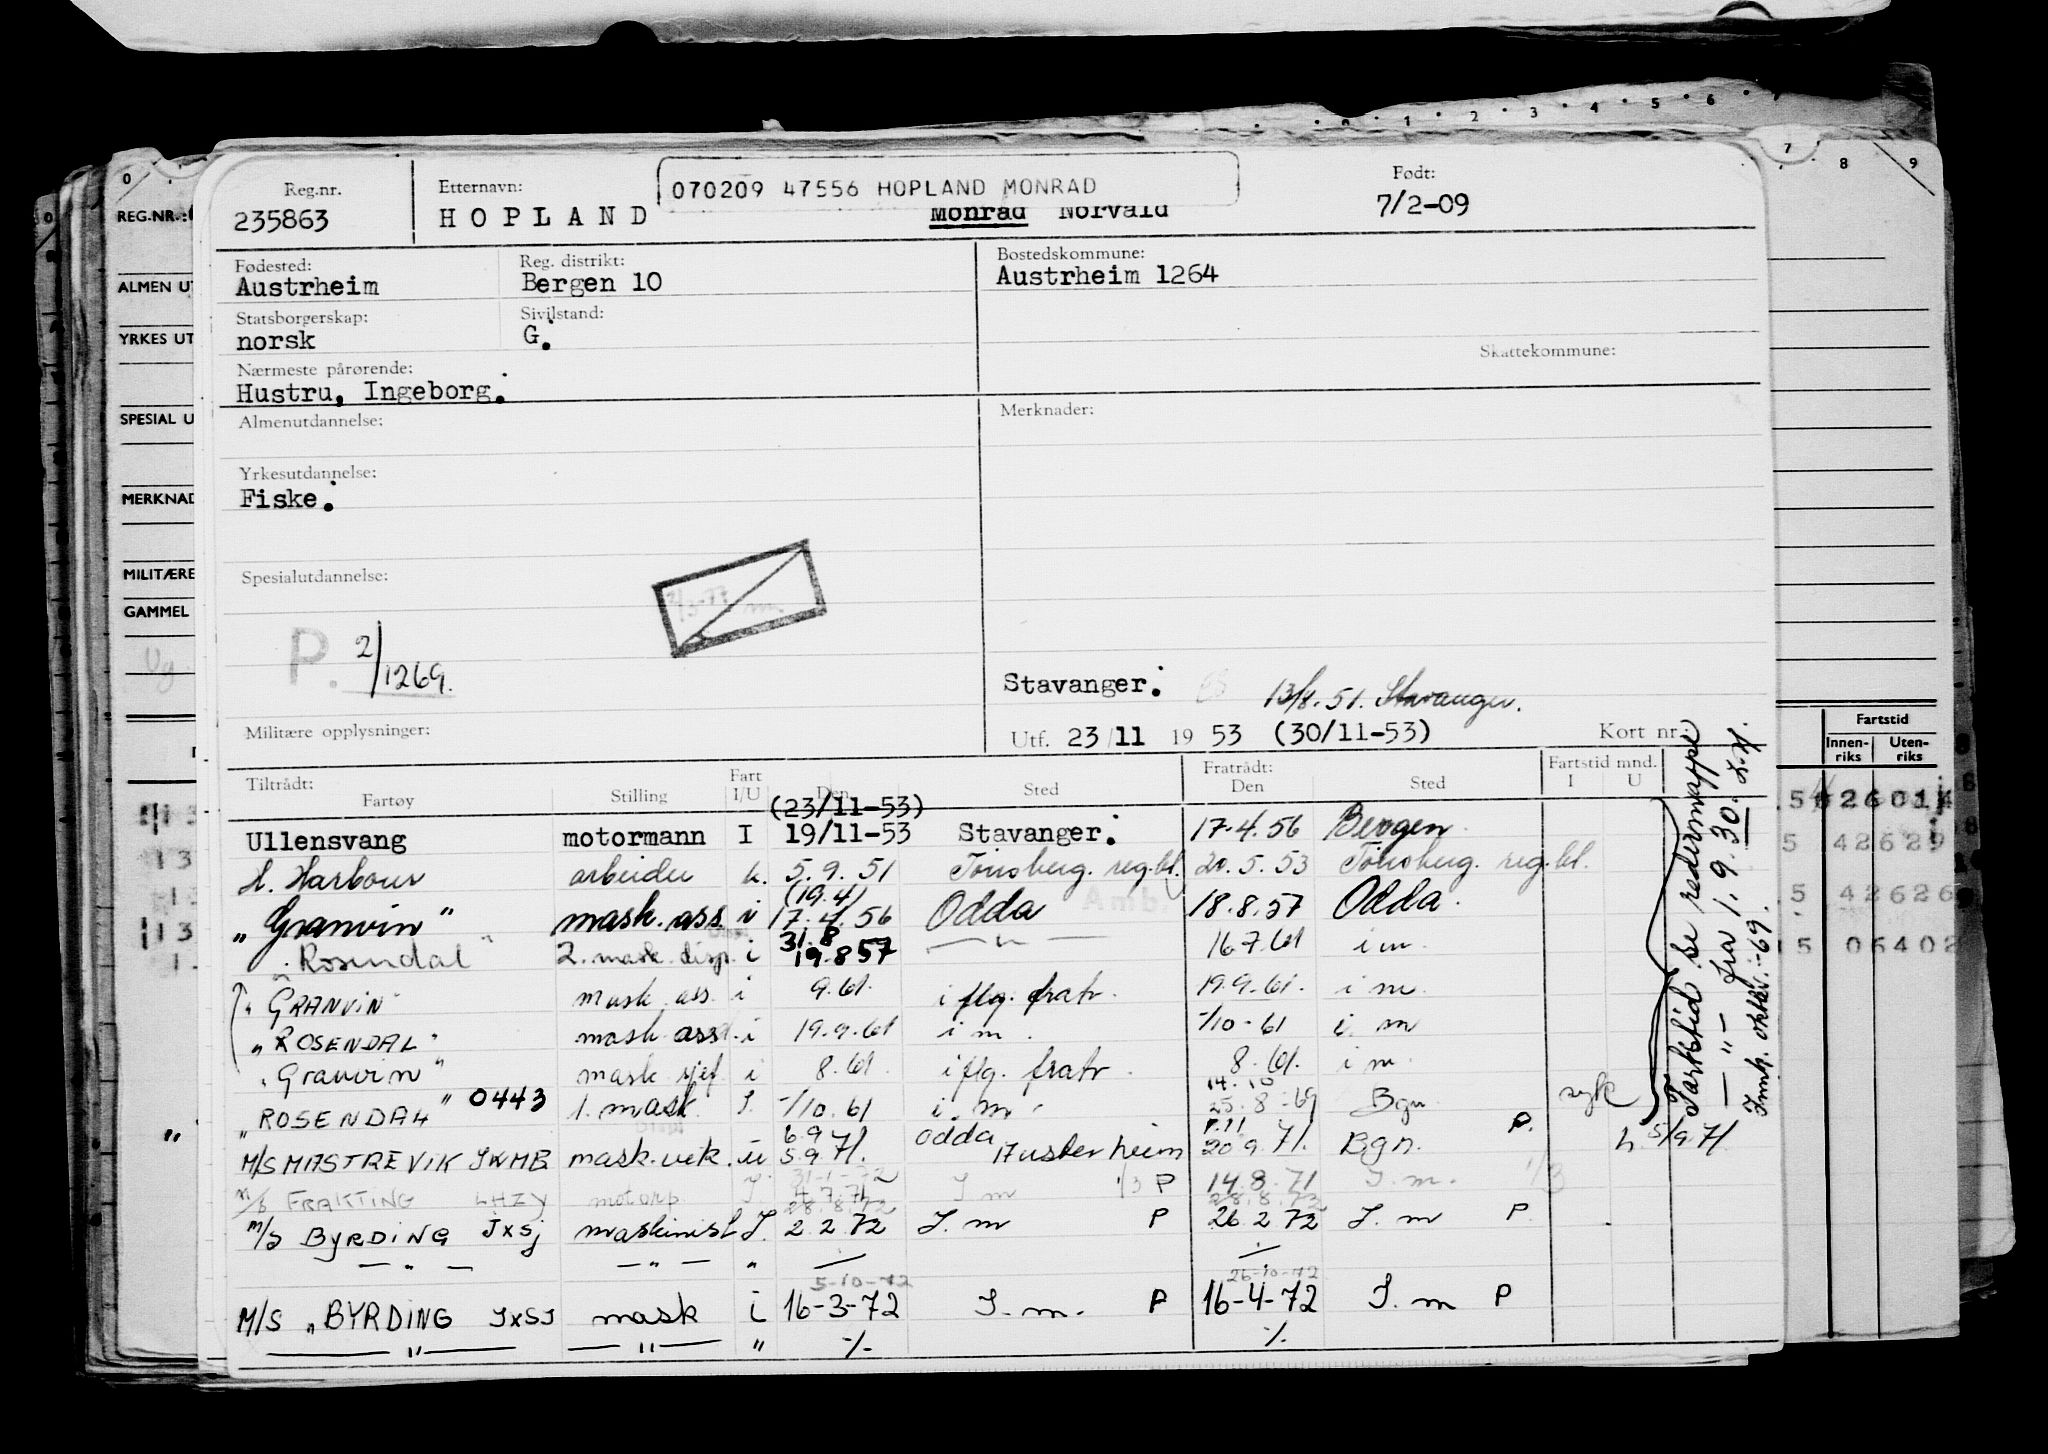 0 1 2 3 4 5 6
0 7 8 9
REG.NR.:
ALMEN UT
YRKES UT
SPECIAL U
MERKNAD
MILITÆRE
GAMMEL
Reg.nr. Etternavn: 070209 47556 HOPLAND MONRAD Født:
235863 HOPLAND Monrad Norvald 7/2-09
Fødested: Reg. distrikt: Bostedskommune:
Austrheim Bergen 10 Austrheim 1264
Statsborgerskap: Sivilstand:
norsk G.
Skattekommune:
Nærmeste pårørende:
Hustru, Ingeborg.
Almenutdannelse: Merknader:
Yrkesutdannelse:
Fiske.
Spesialutdannelse:
P. 2/1269.
Stavanger. 13/8.51. Stavanger.
Militære opplysninger: Utf. 23/11 1953 (30/11-53) Kort nr.
Tiltrådt: Fratrådt: Fartstid mnd.
Fartøy Stilling Fart I/U Den Sted Den Sted I U
(23/11-53)
Ullensvang motormann I 19/11-53 Stavanger. 17.4.56 Bergen.
H. Harbour arbeider u. 5.9.51 Tönsberg. reg.bl. 20.5.53 Tönsberg. reg.bl.
(19.4)
"Granvin" mask. ass. i 17.4.56 Odda 18.8.57 Odda.
31.8
"Rosendal" 2. mask disp. i 19.8 57 — " — 16 7.61 i m
"GRANVIN" mask. ass. i 9.61. i flg. fratr. 19.9.61. i m
"ROSENDAL" mask. ass. i 19.9.61 i m. -/10-61 i. m
"Granvin" mask sjef. i 8.61. i flg. fratr. 8.61. i m.
14.10
"ROSENDAL" 0443 1. mask. I. -/10.61 i. m. 25.8-69 Bgn. syk
6.9 Odda P.
M/S MASTREVIK JWMB mask.vek. u 5.9.71. Austerheim 20.9.71. Bgn. 5/9.71.
M/S FRAKTING LHZY motorp. I. 4.7.71 I m 1/3 P 14.8.71 I. m. 1/3
28.8.72 28.8.72
M/S BYRDING JXSJ maskinist I. 2.2.72 I. m P 26.2.72 I. m P.
— " — — " — " -/- -/-
5-10-72 26-10-72
M/S "BYRDING JXSJ mask i 16-3-72 I. m. P 16-4-72 I. m P
— " — — " — " -/- -/-
Fartstid se redermappe
— " — fra 1.9.30.
Innk. oktbr.-69.
Fartstid
Innen-riks Uten-riks